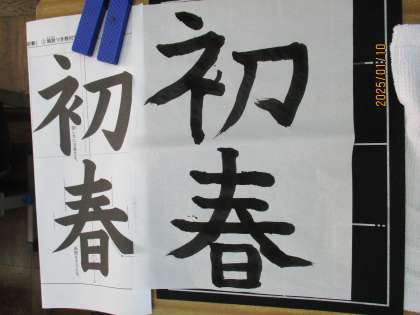 初
春
初
春
2025/01/10